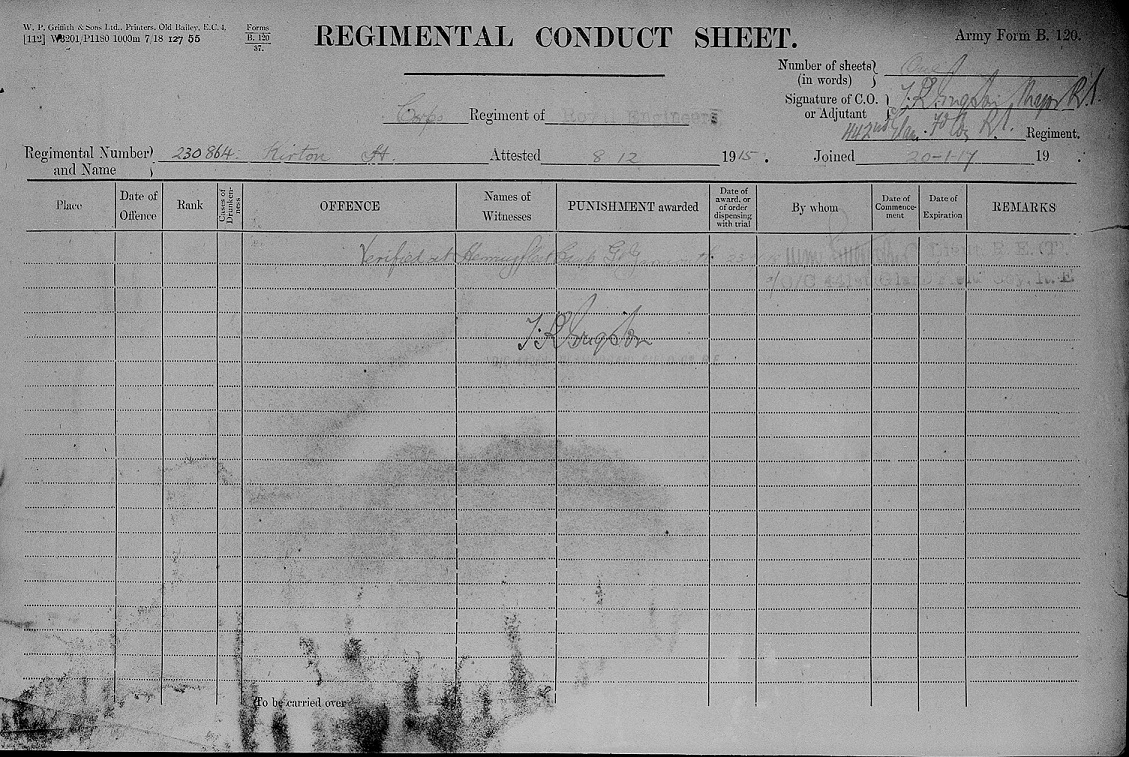 W. P. Griffith & Sons Ltd., Printers, Old Bailey, E.C.4.
[112] W3201/P1180 1000m 7/18 127 55
Forms
B. 120
37.
REGIMENTAL CONDUCT SHEET.
Army Form B. 120.
Number of sheets
(in words)
One
Signature of C.O.
or Adjutant
Major R.E.
Corps Regiment of Royal Engineers
442nd Glam. Fd Coy R.E. Regiment.
Regimental Number
and Name
230864 Kirton H. Attested 8 12 1915. Joined 20-1-17 19 .
Place
Date of
Offence
Rank
Cases of
Drunken-
ness
OFFENCE
Names of
Witnesses
PUNISHMENT awarded
Date of
award, or
of order
dispensing
with trial
By whom
Date of
Commence-
ment
Date of
Expiration
REMARKS
Verified at Camp Lieut R. E. (T)
O/C Glam Field Coy. R. E.
To be carried over